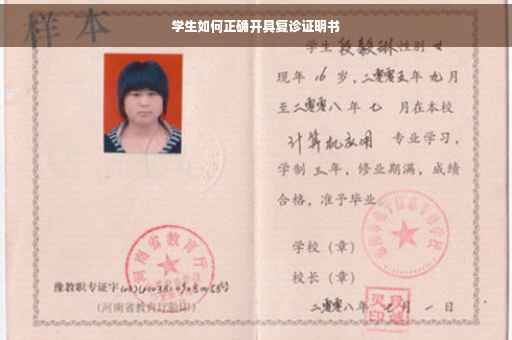 学生如何正确开具复诊证明书
样本
学生段毅琳性别女
现年16岁，二零零五年九月
至二零零八年七月在本校
计算机应用 专业学习，
学制三年，修业期满，成绩
合格，准予毕业。
学校（章）
校长（章）
二零零八年七月一日
河南省教育厅
豫教职专证字
（河南省教育厅验印）